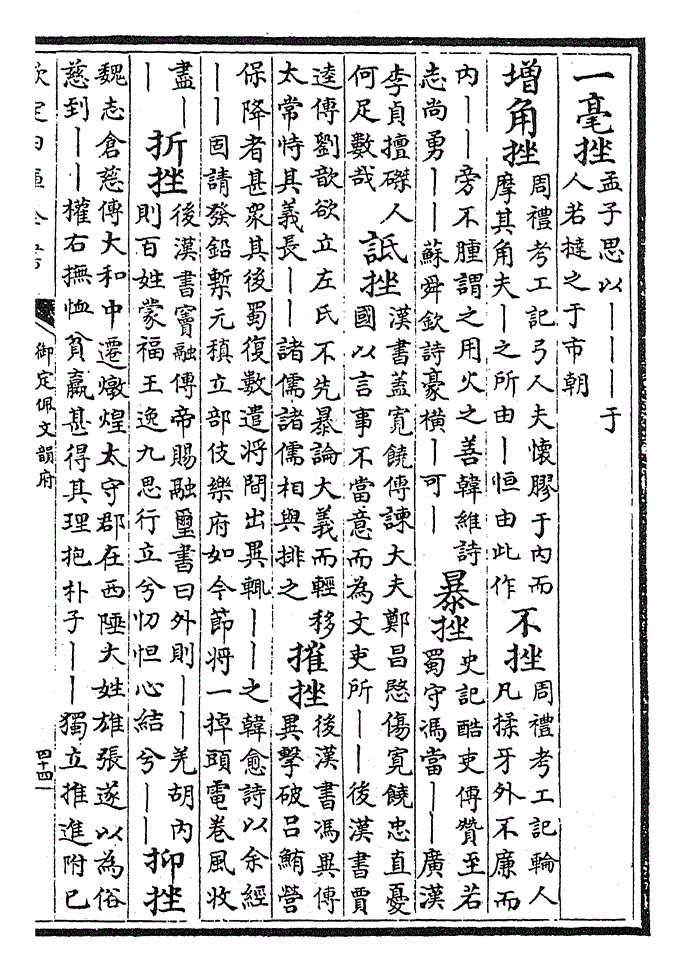 一毫挫
孟子思以丨丨丨于
人若撻之于市朝
增角挫
周禮考工記弓人夫懷膠于內而
摩其角夫丨之所由丨恒由此作
不挫
周禮考工記輪人
凡揉牙外不廉而
內丨丨旁不腫謂之用火之善韓維詩
志尚勇丨丨蘇舜欽詩豪橫丨可丨
暴挫
史記酷吏傳贊至若
蜀守馮當丨丨廣漢
李貞擅磔人
何足數哉
詆挫
漢書蓋寬饒傳諫大夫鄭昌愍傷寬饒忠直憂
國以言事不當意而為文吏所丨丨後漢書賈
逵傳劉歆欲立左氏不先暴論大義而輕移
太常恃其義長丨丨諸儒諸儒相與排之
摧挫
後漢書馮異傳
異擊破呂鮪營
保降者甚衆其後蜀復數遣將間出異輒丨丨之韓愈詩以余經
丨丨固請發鉛槧元稹立部伎樂府如今節將一掉頭電卷風收
盡丨
丨
折挫
後漢書竇融傳帝賜融璽書曰外則丨丨羌胡內
則百姓蒙福王逸九思行立兮忉怛心結兮丨丨
抑挫
魏志倉慈傳大和中遷燉煌太守郡在西陲大姓雄張遂以為俗
慈到丨丨權右撫恤貧羸甚得其理抱朴子丨丨獨立推進附已
欽定四庫全書
御定佩文韻府
四十四